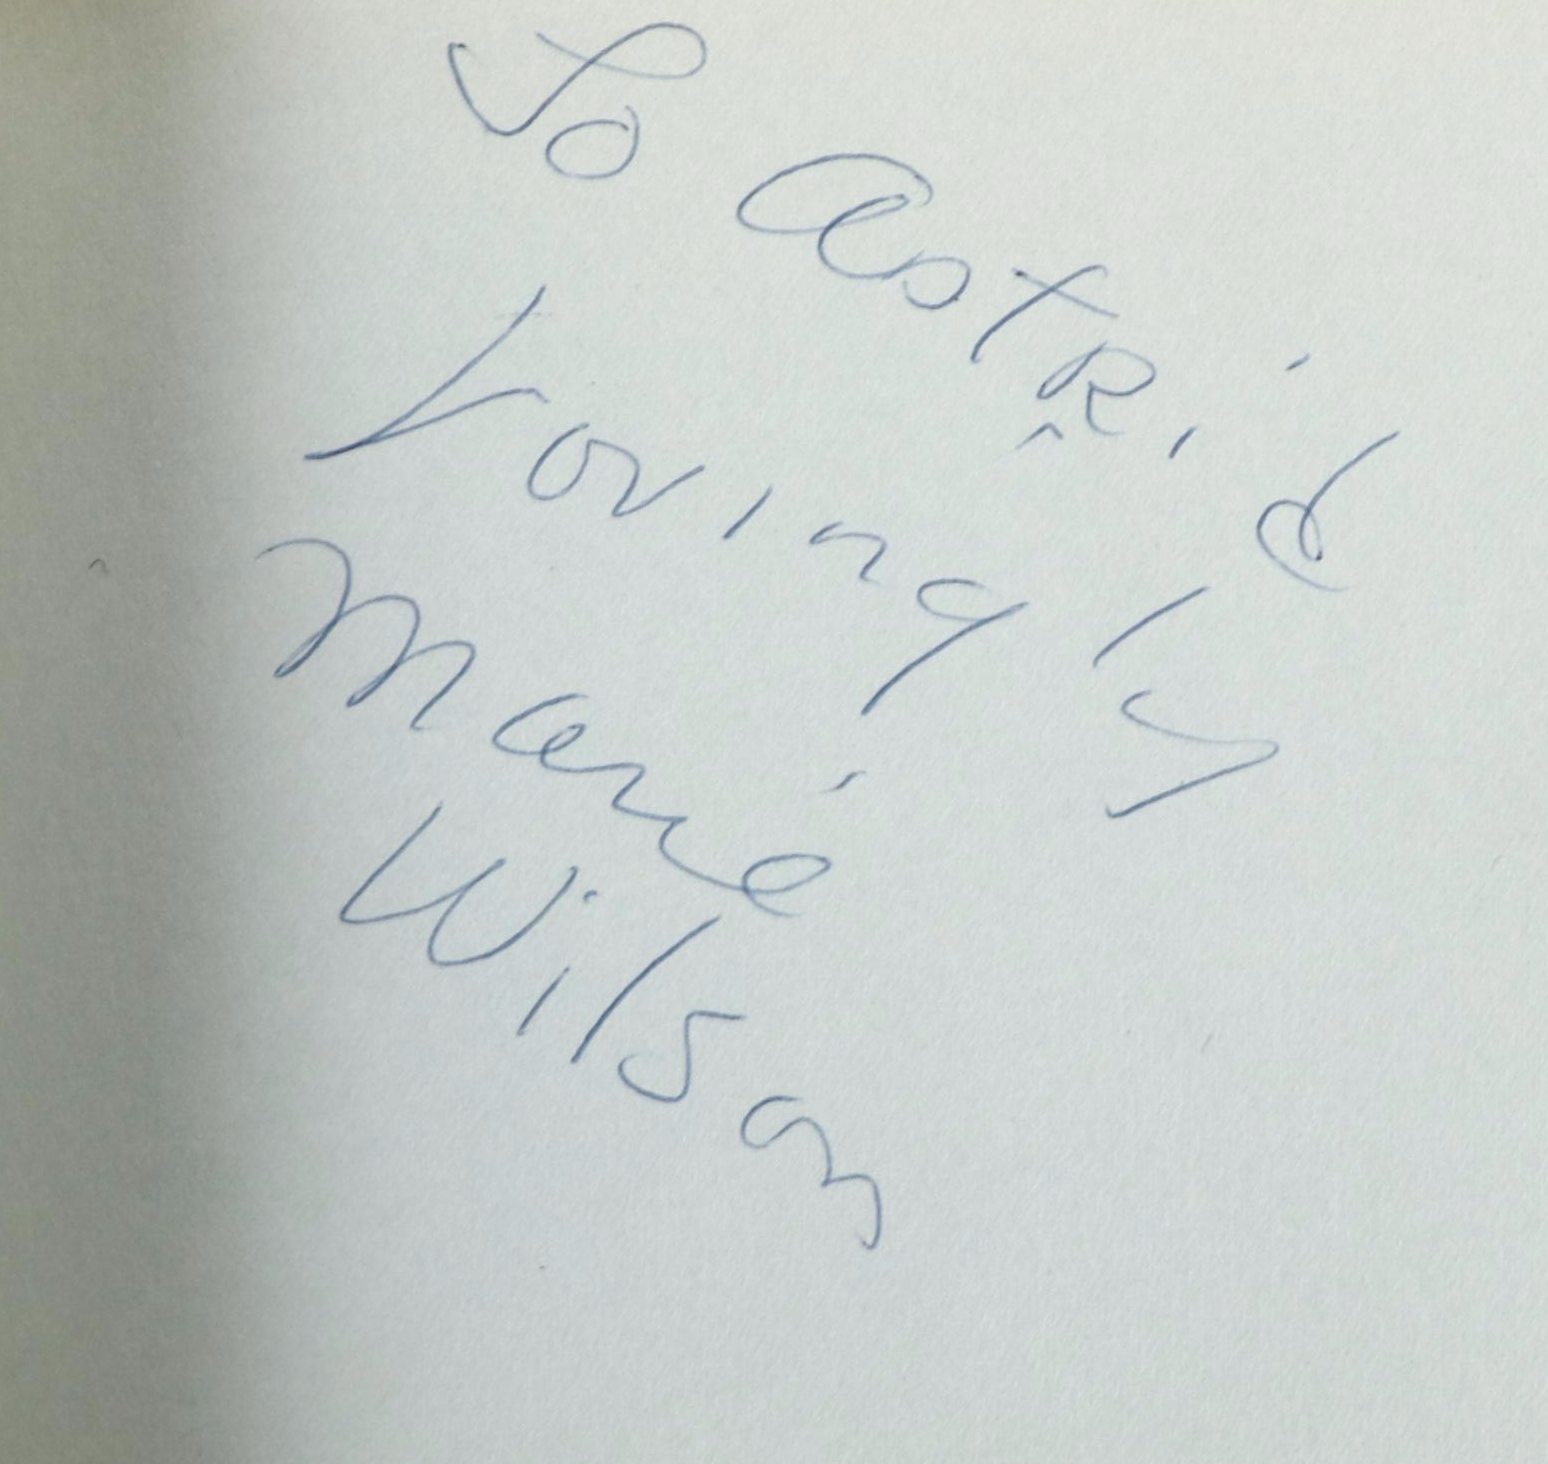 To AstRid
Lovingly
Marie
Wilson